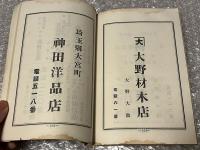 大
大野材木店
大野大助
電話五一番
埼玉県大宮町
神田洋品店
電話五一八番